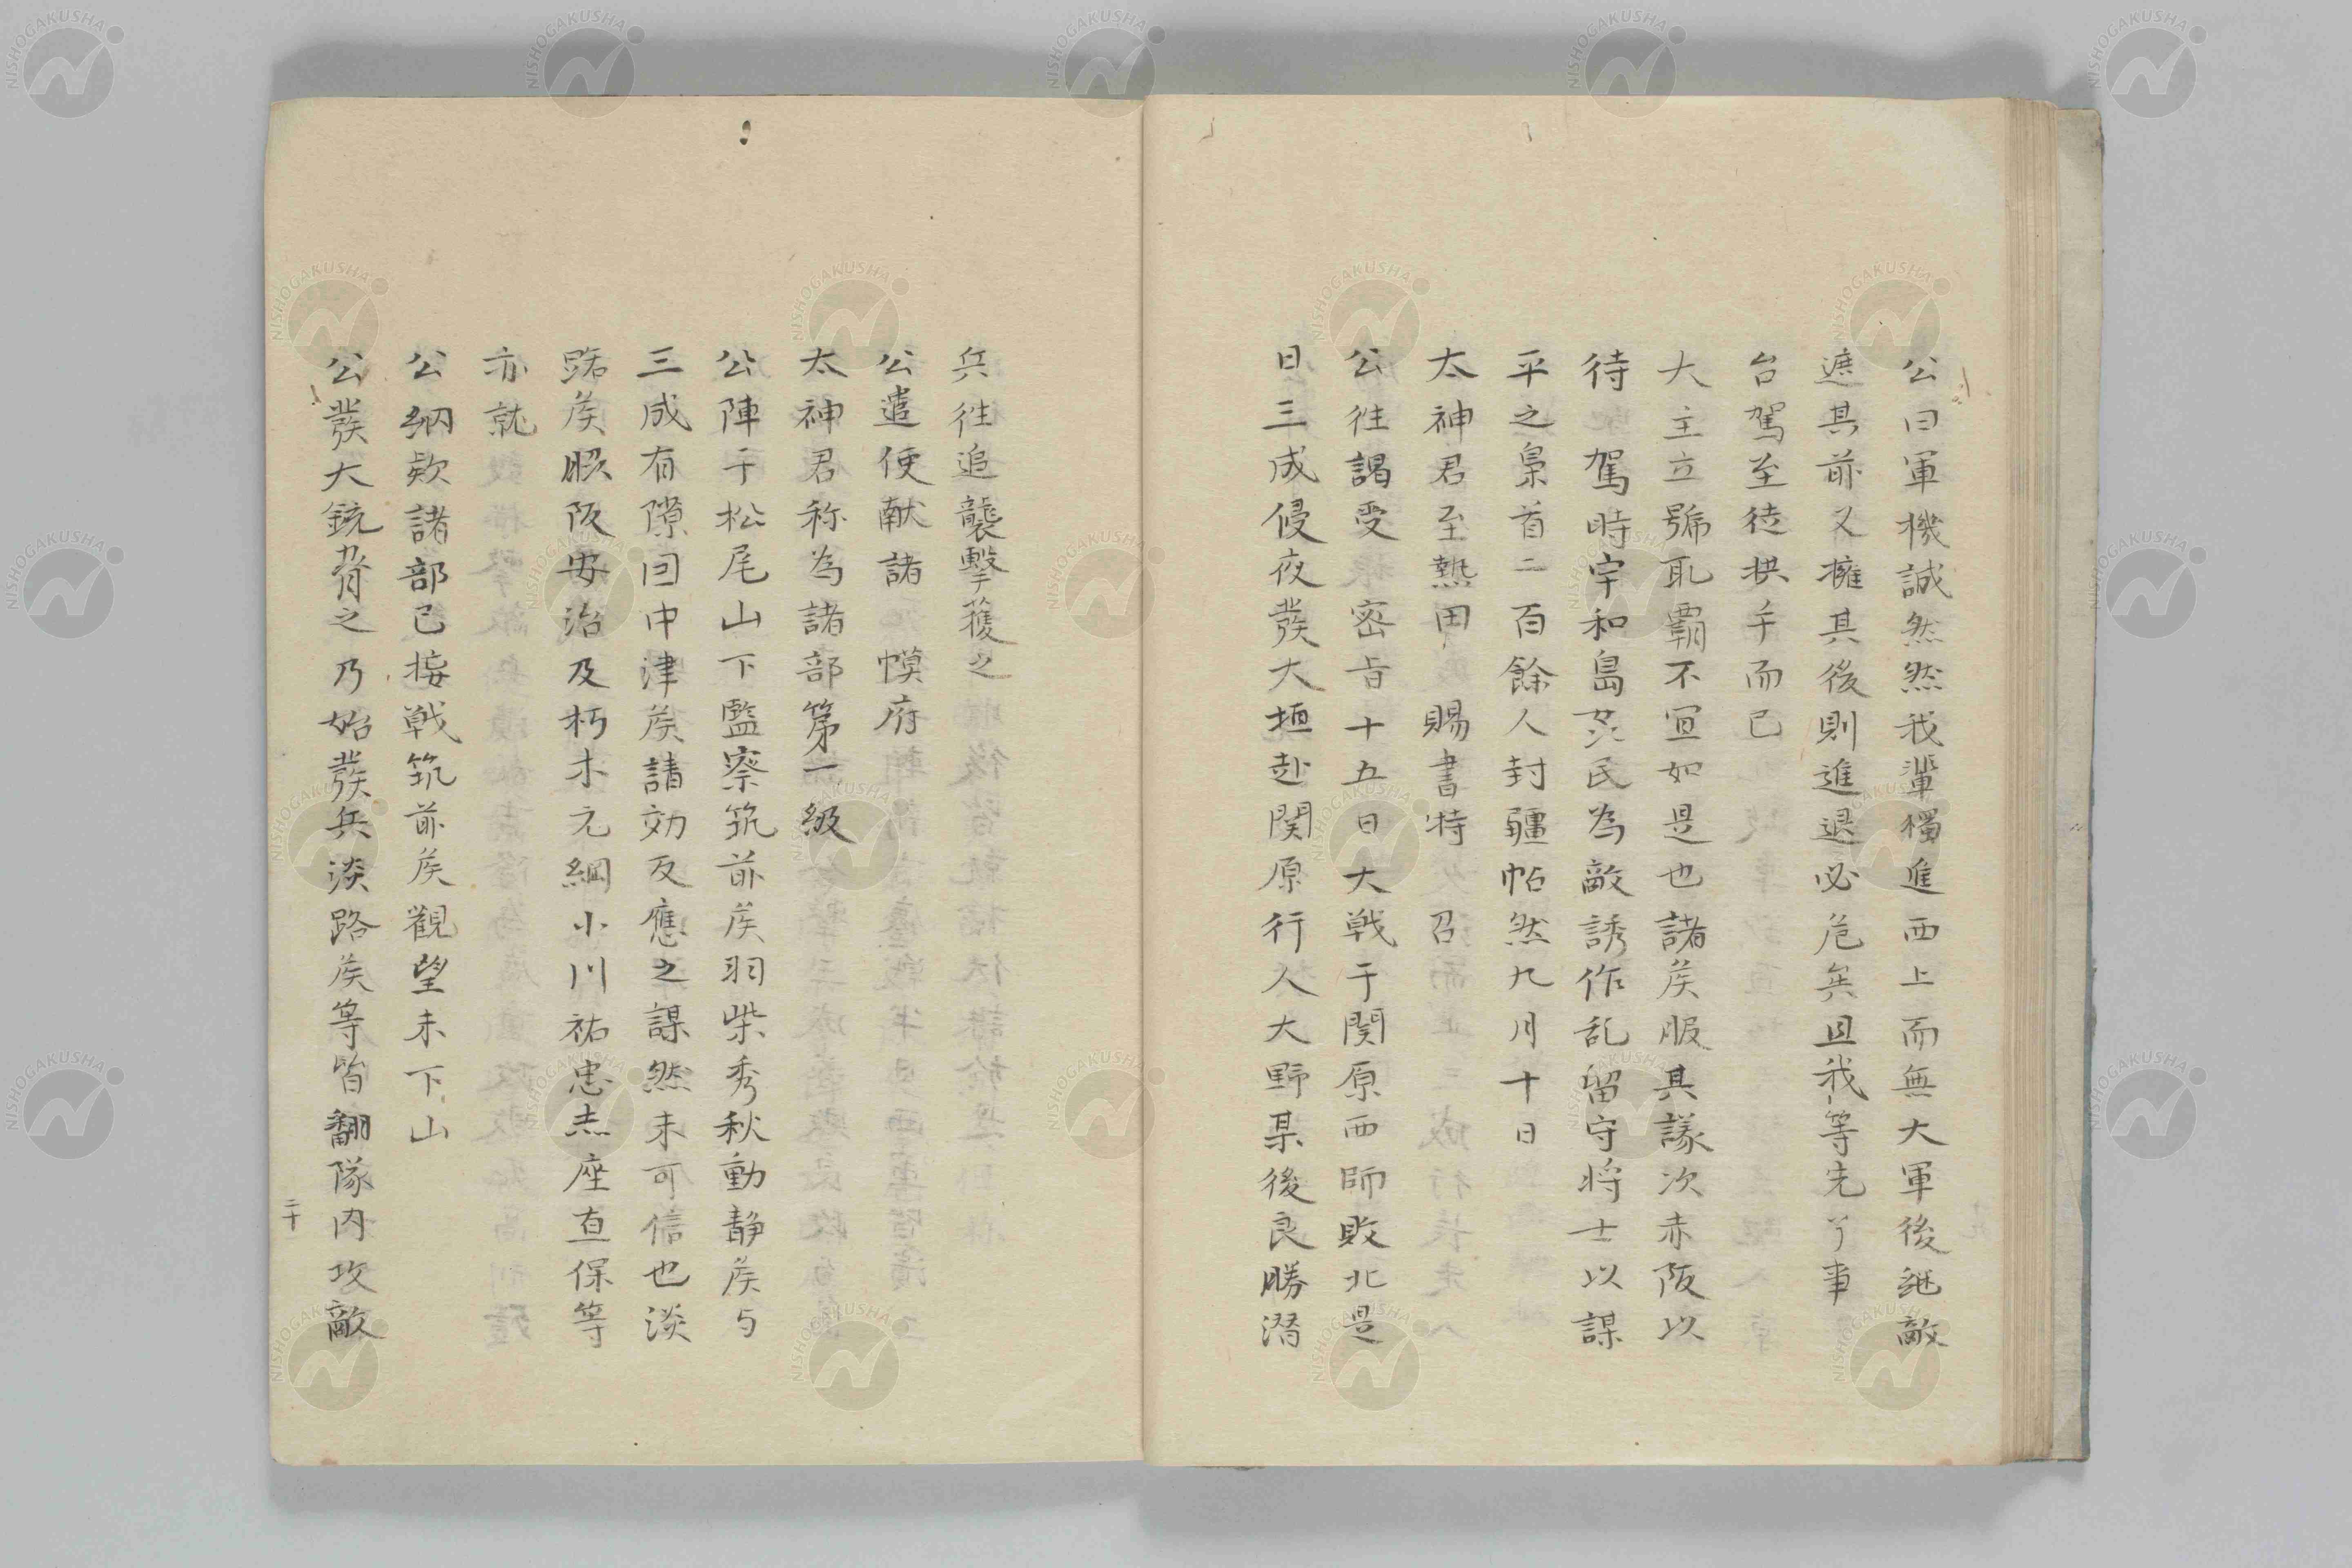 公曰軍機誠然然我輩獨進西上而無大軍後継敵
遮其前又擁其後則進退必危矣且我等先了事
台駕至徒拱手而已
大主立號取覇不宜如是也諸侯服其議次赤阪以
待　駕時宇和島災民為敵誘作乱留守将士以謀
平之梟首二百餘人封疆帖然九月十日
太神君至熱田　賜書特　召
公往謁受　密旨十五日大戦于関原西師敗北是
日三成侵夜發大垣赴関原行人大野某後良勝潜
兵往追襲擊獲之
公遣使献諸　幙府
太神君称為諸部第一級
公陣于松尾山下監察筑前侯羽柴秀秋動静侯与
三成有隙因中津侯請効反應之謀然未可信也淡
路侯脇阪安治及朽木元綱小川祐忠赤座直保等
亦就
公納欵諸部已接戦筑前侯觀望未下山
公發大銃脅之乃始發兵淡路侯等皆翻隊内攻敵
二十
NISHOGAKUSHA